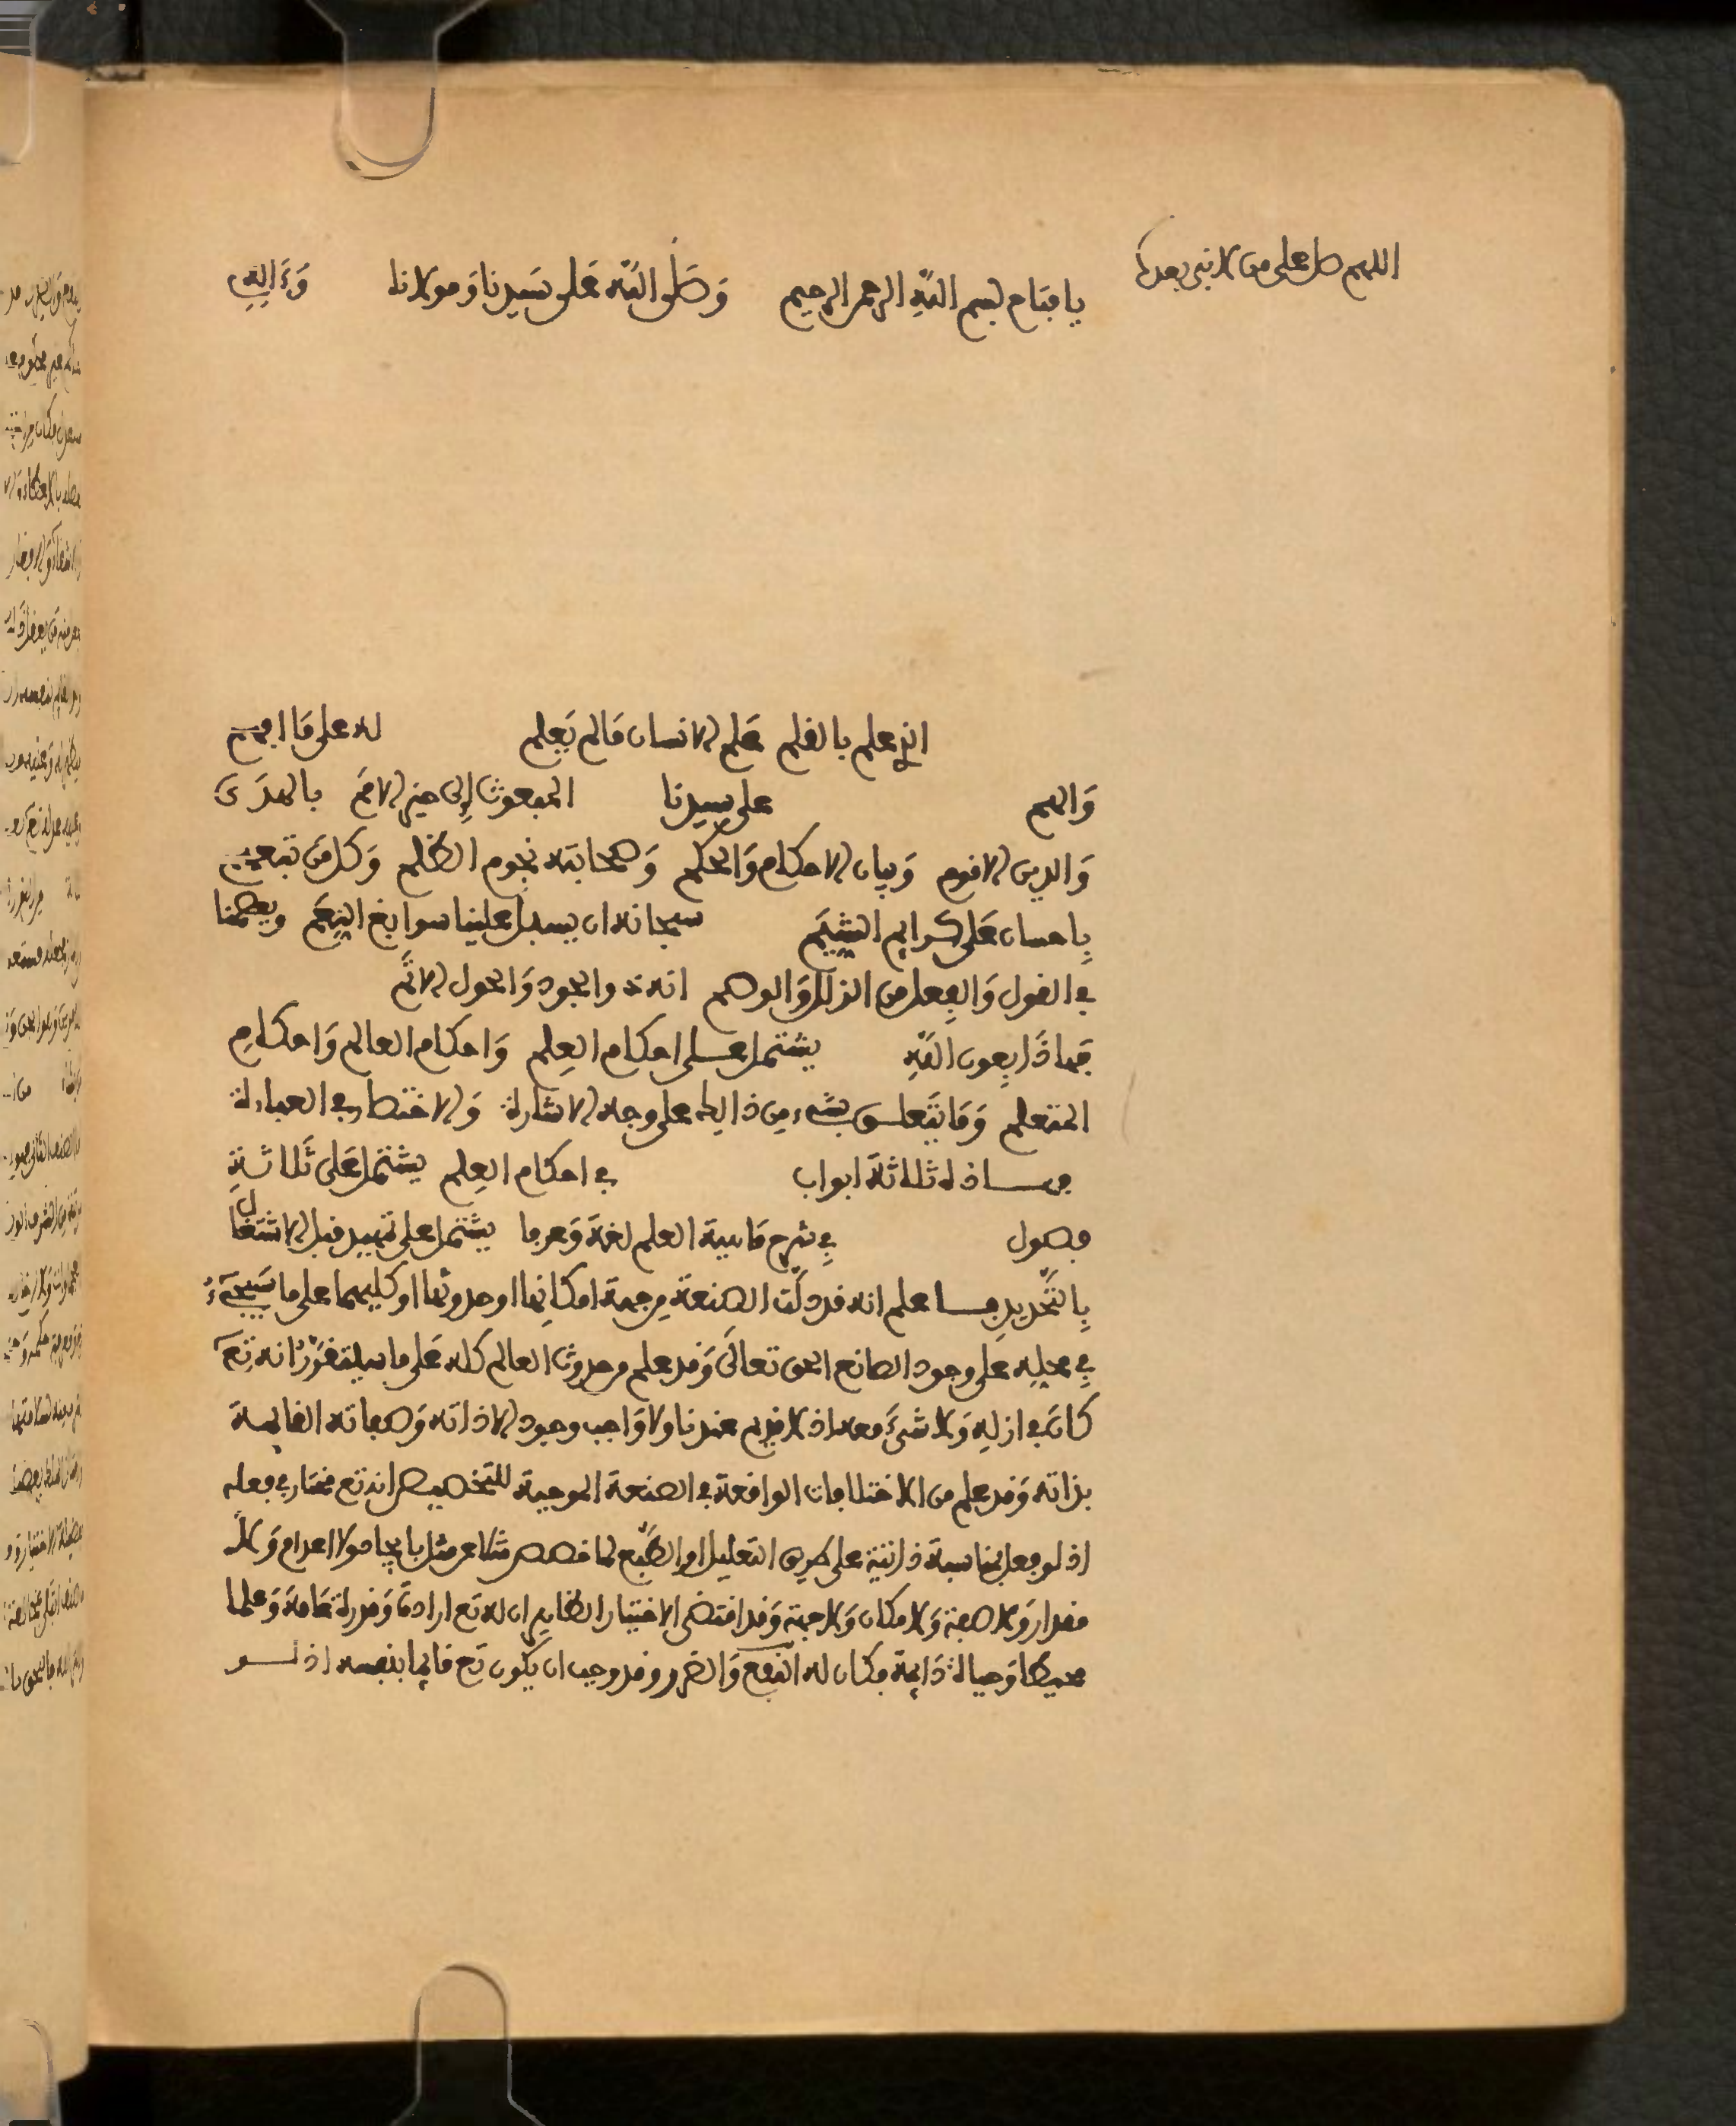 اللهم صل على من لا نبي بعده
يا فتاح بسم الله الرحمن الرحيم وَصَلَّى اللَّه عَلى سَيِدنا وَمولانا وَءَالِهِ
الذي علم بالقلم عَلم الانسان مَا لم يَعلم له على مَا الهم
وَالهم على سيدنا المبعوث إِلى خير الامَم بالهدَى
وَالدين الاقوم وَبيان الاحكام وَالحكم وَصحابته نجوم الظلم وَكل مَن تبعهم
بِاحسان عَلى كرايم الشِّيَم سبحانه ان يسبل علينا سوابغ النِعَم ويعصمنا
في القول وَالفِعل من الزلل وَالوهم انه ذو الجود وَالحول الاتَم
فهاذَا بِعون اللَّهِ يشتمل على احكام العِلم وَاحكام العالم وَاحكام
المتعلم وَمَا يتَعلق بشيء مِن ذالك على وجه الاشارة وَالاختصار في العبارة
فهاذه ثلاثة ابواب في احكام العِلم يشتمل عَلى ثَلاثَةِ
فصول فِي شرح مَاهية العلم لغةَ وَعرفا يشتمل على تمهيد قبل الاشتغال
بِالتَّحديدِ فاعلم انه قد دلَّت الصنعة من جهة امكانِها او حدوثها او كليهما على ما سَيجيَءُ
فِي محلِه عَلى وجود الصانع الحق تعالَى وَقد علم من حدوث العالم كله عَلى ما سيتقرَّرُ انه تعَ
كان في ازلِهِ وَلا شَيءَ معه اذ لا قديم عندنا ولا وَاجب وجود الا ذاته وَصفاته القايمة
بذاته وَقد علم من الاختلافات الواقعة في الصنعة الموجبة للتخصيص انه تع مختار في فعله
اذ لو فعل بمناسبة ذاتية على طريق التعليل او الطَّبع لما خصص مثلا عن مثل بايجاد ولا اعدام وَلا
مقدار وَلا صفة وَلا مكان وَلا جهة وَقد اقتضى الاختيار الظاهر ان له تع ارادةً وَقدرة عَامة وَعلما
محيطا وَحياة دَايمة فكان له النفع وَالضرر وقد وجب ان يكون تع قايما بنفسه اذ لو